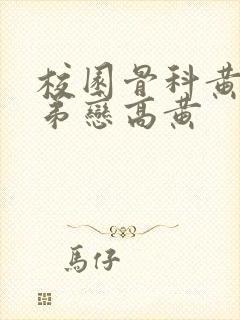 校園骨科黃
弟戀高黃
馬仔